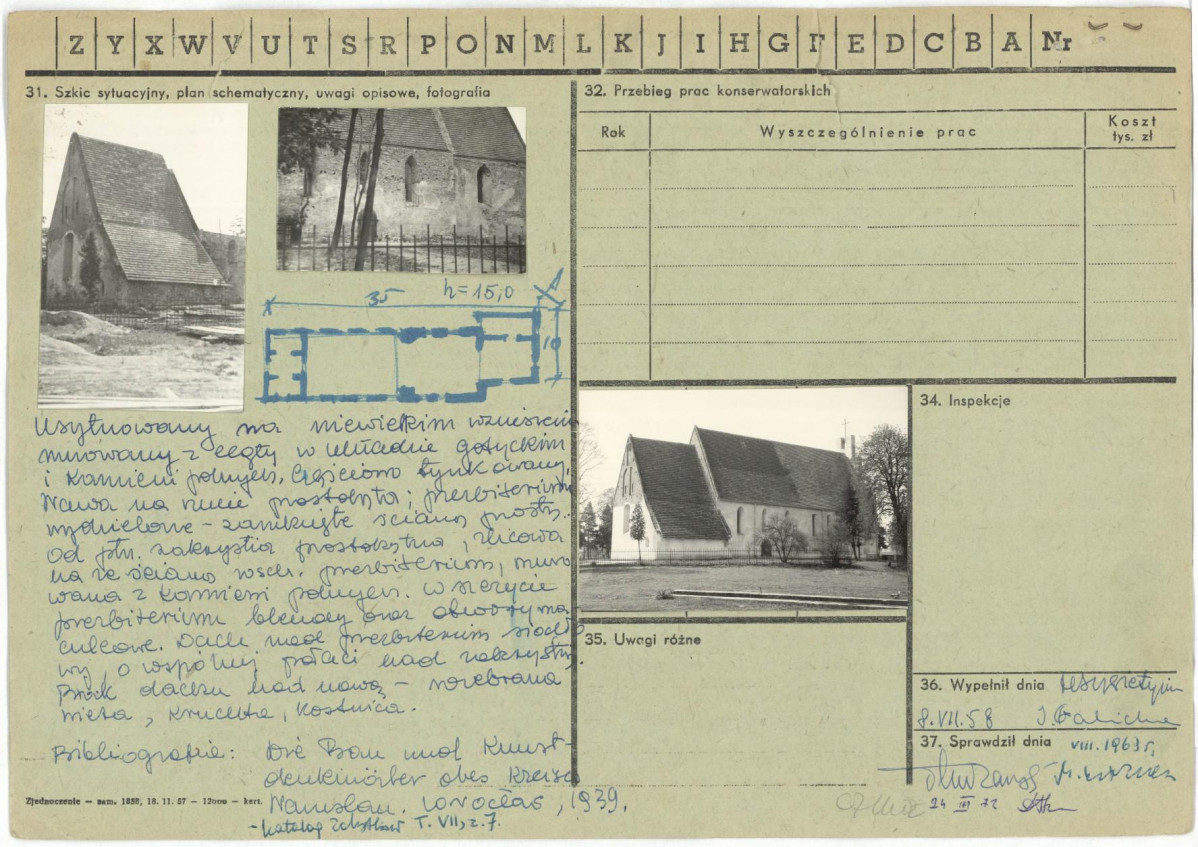 Z Y X W V U T S R P O N M L K J I H G F E D C B A Nr
31. Szkic sytuacyjny, plan schematyczny, uwagi opisowe, fotografia
35 h=15,0
10
Usytuowany na niewielkim wzniesieniu
murowany z cegły w układzie gotyckim
i kamieni polnych, częściowo tynkowany.
Nawa na rzucie prostokąta; prezbiterium
wydzielone – zamknięte ścianą prostą.
Od płn. zakrystia prostokątna, zlicowa
na ze ścianą wsch. prezbiterium, muro
wana z kamieni polnych. W szczycie
prezbiterium blendy oraz otwory
Dach nad prezbiterium siodło
wy, o wspólnej połaci nad zakrystią.
Brak dachu nad nawą – rozebrana
wieża, kruchta, kostnica.
Bibliografia: Die Bau und Kunst-
denkmäler des Kreises
Namslau. Wrocław, 1939.
- Katalog Zabytków T. VII, z. 7.
Zjednoczenie — zam. 1859, 18. 11. 57 — 12000 — kart.
32. Przebieg prac konserwatorskich
Rok Wyszczególnienie prac Koszt
tys. zł
34. Inspekcje
35. Uwagi różne
36. Wypełnił dnia
8.VII.58
37. Sprawdził dnia VIII.1963 r,
24 III 72